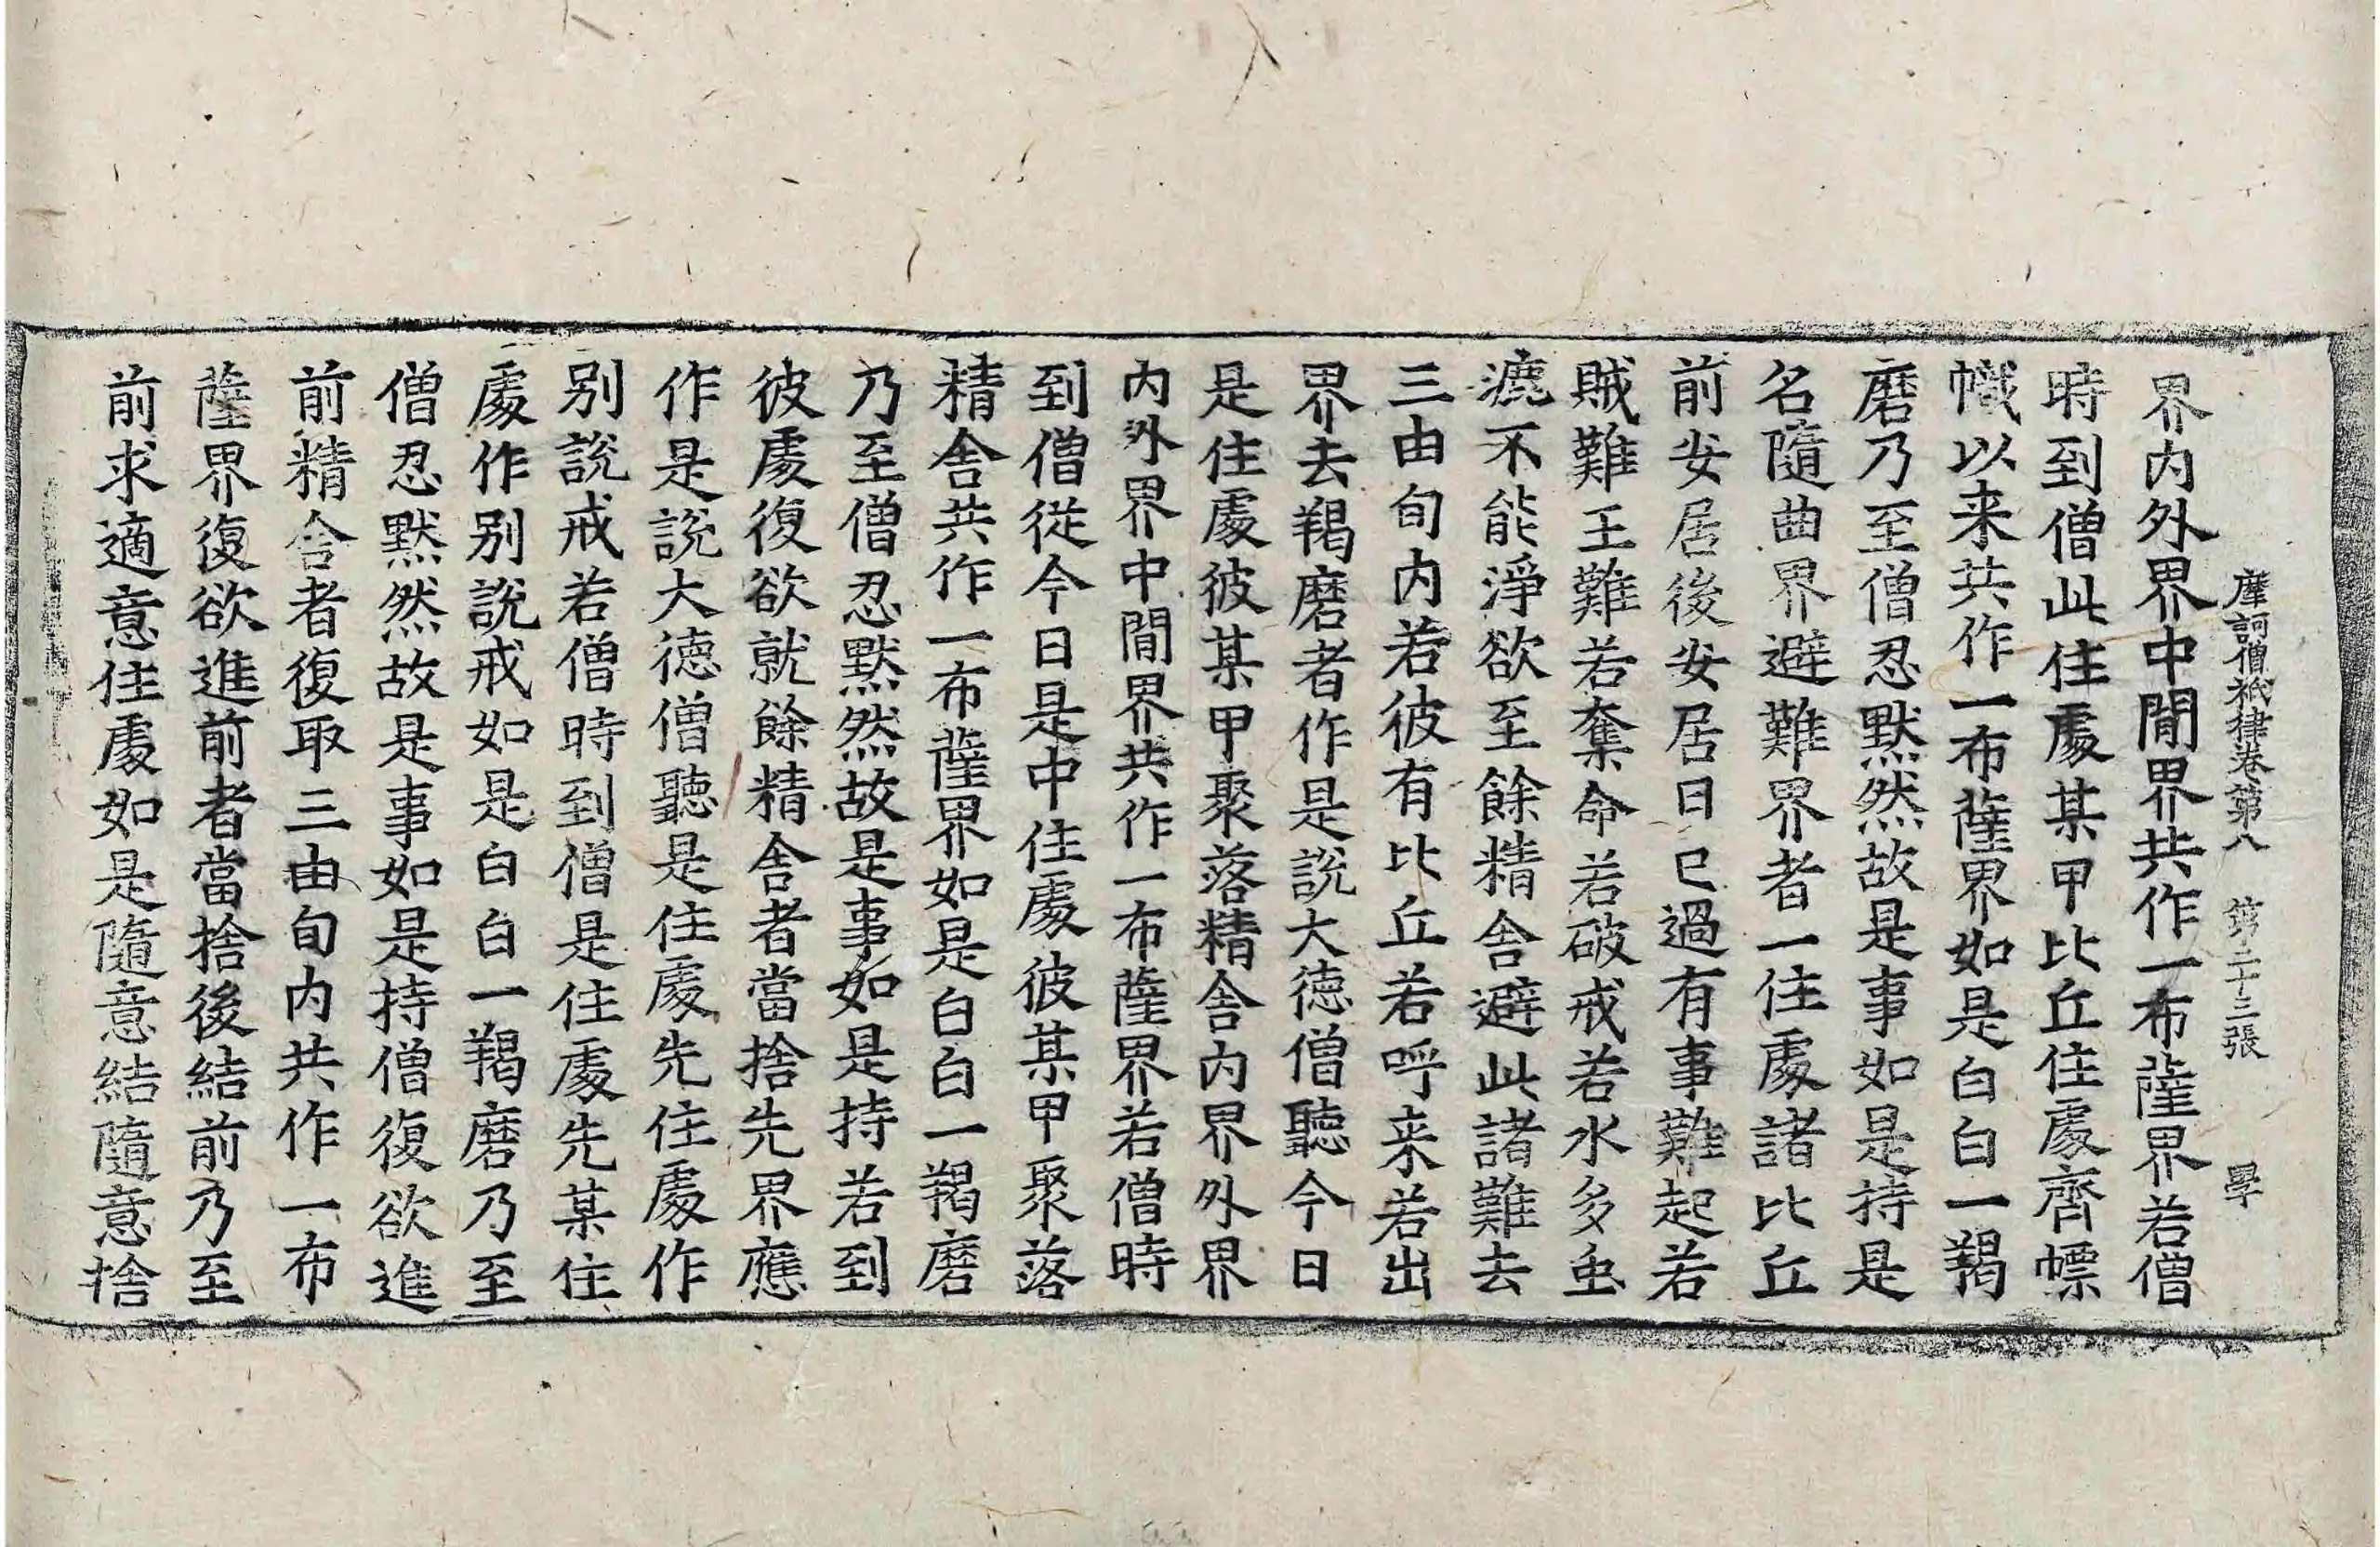 摩訶僧祇律卷第八 第二十三張 學
界内外界中間界共作一布薩界若僧
時到僧此住處某甲比丘住處齊幖
幟以来共作一布薩界如是白白一羯
磨乃至僧忍默然故是事如是持是
名隨曲界避難界者一住處諸比丘
前安居後安居日已過有事難起若
賊難王難若奪命若破戒若水多虫
漉不能淨欲至餘精舍避此諸難去
三由旬内若彼有比丘若呼来若出
界去羯磨者作是說大德僧聽今日
是住處彼某甲聚落精舍内界外界
内外界中間界共作一布薩界若僧時
到僧從今日是中住處彼某甲聚落
精舍共作一布薩界如是白白一羯磨
乃至僧忍默然故是事如是持若到
彼處復欲就餘精舍者當捨先界應
作是說大德僧聽是住處先住處作
别說戒若僧時到僧是住處先某住
處作别說戒如是白白一羯磨乃至
僧忍默然故是事如是持僧復欲進
前精舍者復取三由旬内共作一布
薩界復欲進前者當捨後結前乃至
前求適意住處如是隨意結隨意捨